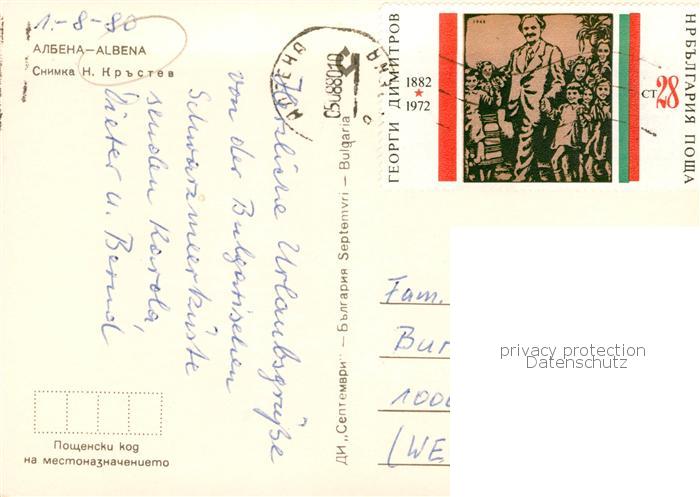 1.-8-80
АЛБЕНА—ALBENA
Снимка Н. Кръстев
Herzliche Urlaubsgrüße
von der Bulgarischen
Schwarzmeerküste
senden Karola,
Dieter u. Bernd
Пощенски код
на местоназначението
ДИ „Септември" — България Septemvri — Bulgaria
АЛБЕНА
ГЕОРГИ ДИМИТРОВ
1882
1972
1948
СТ 28
НР БЪЛГАРИЯ ПОЩА
Fam.
Bur
1000
(WE
privacy protection
Datenschutz